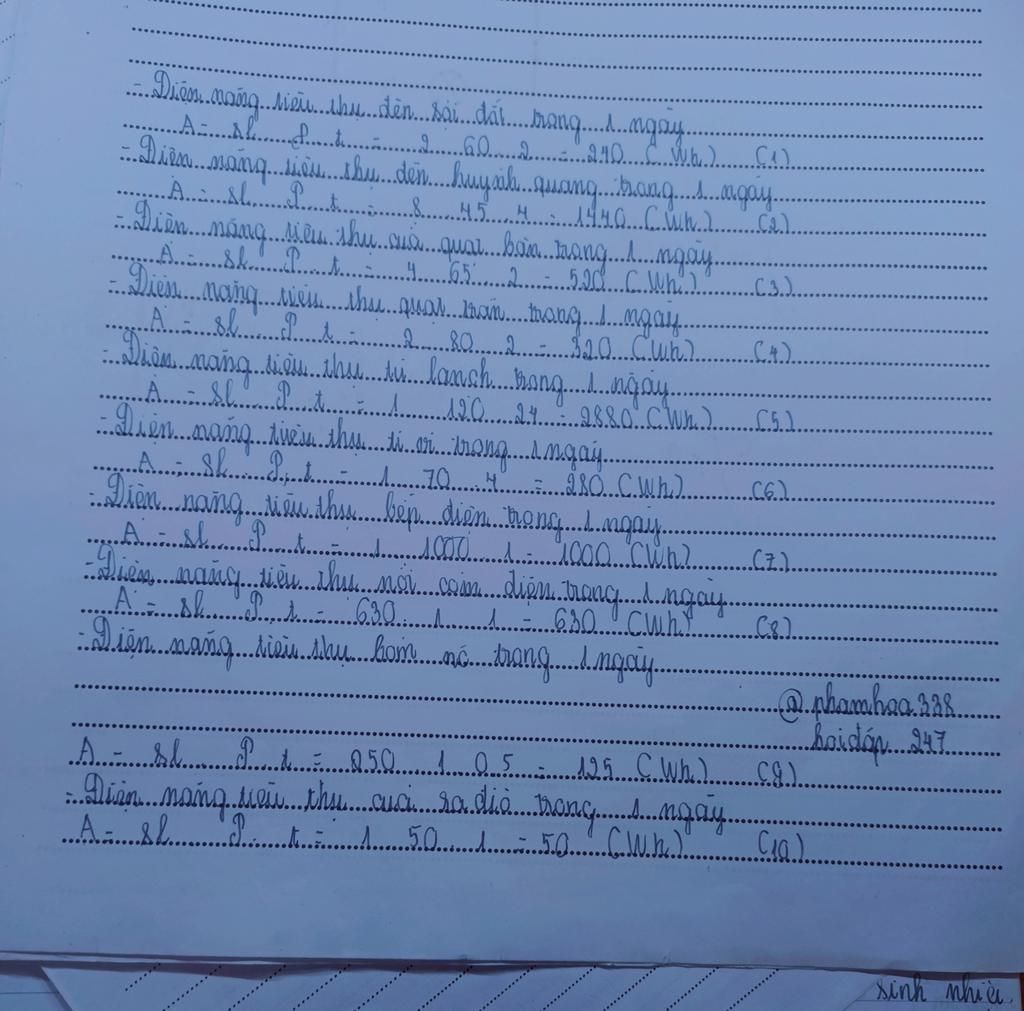 - Điện năng tiêu thụ đèn sợi đốt trong 1 ngày
A = sl . P . t = 2 . 60 . 2 = 240 (Wh) (1)
- Điện năng tiêu thụ đèn huỳnh quang trong 1 ngày
A = sl . P . t = 8 . 45 . 4 = 1440 (Wh) (2)
- Điện năng tiêu thụ của quạt bàn trong 1 ngày
A = sl . P . t = 4 . 65 . 2 = 520 (Wh) (3)
- Điện năng tiêu thụ quạt trần trong 1 ngày
A = sl . P . t = 2 . 80 . 2 = 320 (Wh) (4)
- Điện năng tiêu thụ tủ lanch trong 1 ngày
A = sl . P . t = 1 . 120 . 24 = 2880 (Wh) (5)
- Điện năng tiêu thụ ti vi trong 1 ngày
A = sl . P . t = 1 . 70 . 4 = 280 (Wh) (6)
- Điện năng tiêu thụ bếp điện trong 1 ngày
A = sl . P . t = 1 . 1000 . 1 = 1000 (Wh) (7)
- Điện năng tiêu thụ nồi cơm điện trong 1 ngày
A = sl . P . t = 630 . 1 . 1 = 630 (Wh) (8)
- Điện năng tiêu thụ bơm nó trong 1 ngày
@phamhoa338
hoidáp 247
A = sl . P . t = 250 . 1 . 0.5 = 125 (Wh) (9)
- Điện năng tiêu thụ của ra điô trong 1 ngày
A = sl . P . t = 1 . 50 . 1 = 50 (Wh) (10)
sinh nhiệt